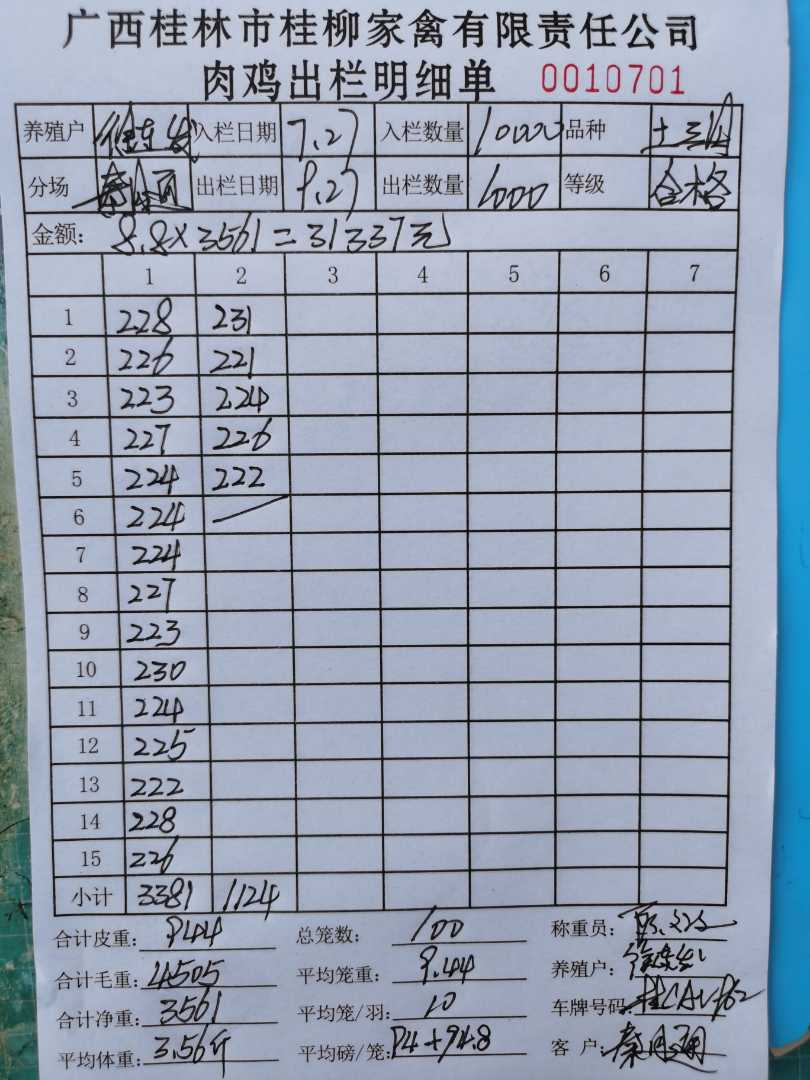 广西桂林市桂柳家禽有限责任公司
肉鸡出栏明细单 0010701
养殖户 入栏日期 7.27 入栏数量 10000 品种 土三
分场 出栏日期 9.27 出栏数量 1000 等级 合格
金额: 8.8×3561=31337元
1 2 3 4 5 6 7
1 228 231
2 226 221
3 223 224
4 227 226
5 224 222
6 224
7 224
8 227
9 223
10 230
11 224
12 225
13 222
14 228
15 226
小计 3381 1124
合计皮重: 944 总笼数: 100 称重员:
合计毛重: 4505 平均笼重: 9.44 养殖户:
合计净重: 3561 平均笼/羽: 10 车牌号码
平均体重: 3.56斤 平均磅/笼: 94+94.8 客户: